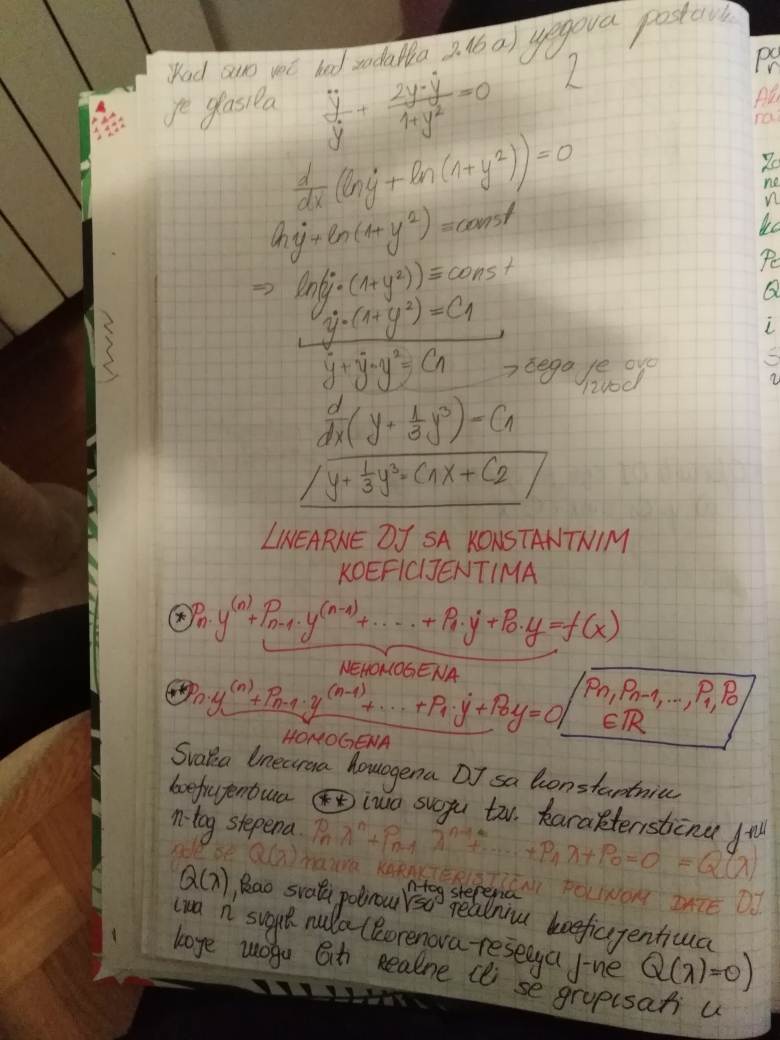 Kad smo već kod zadatka 2.16 a) njegova postavka
je glasila ÿ/ẏ + 2y·ẏ/1+y² = 0
2
d/dx (lnẏ + ln(1+y²)) = 0
lnẏ + ln(1+y²) = const
⇒ ln(ẏ·(1+y²)) = const
ẏ·(1+y²) = C1
ẏ + ẏ·y² = C1 → čega je ovo
izvod
d/dx (y + 1/3 y³) = C1
y + 1/3 y³ = C1X + C2
LINEARNE DJ SA KONSTANTNIM
KOEFICIJENTIMA
(*) Pn·y⁽ⁿ⁾ + Pn-1·y⁽ⁿ⁻¹⁾ + ..... + P1·ẏ + P0·y = f(x)
NEHOMOGENA
(**) Pn·y⁽ⁿ⁾ + Pn-1·y⁽ⁿ⁻¹⁾ + ... + P1·ẏ + P0y = 0
Pn, Pn-1, ..., P1, P0
∈ℝ
HOMOGENA
Svaka linearna homogena DJ sa konstantnim
koeficijentima (**) ima svoju tzv. karakterističnu j-nu
n-tog stepena. Pnλⁿ + Pn-1 λⁿ⁻¹ + ..... + P1λ + P0 = 0 = Q(λ)
gde se Q(λ) naziva KARAKTERISTIČNI POLINOM DATE DJ.
Q(λ), kao svaki polinom n-tog stepena sa realnim koeficijentima
ima n svojih nula (korenova-rešenja j-ne Q(λ)=0)
koje mogu biti realne ili se grupisati u